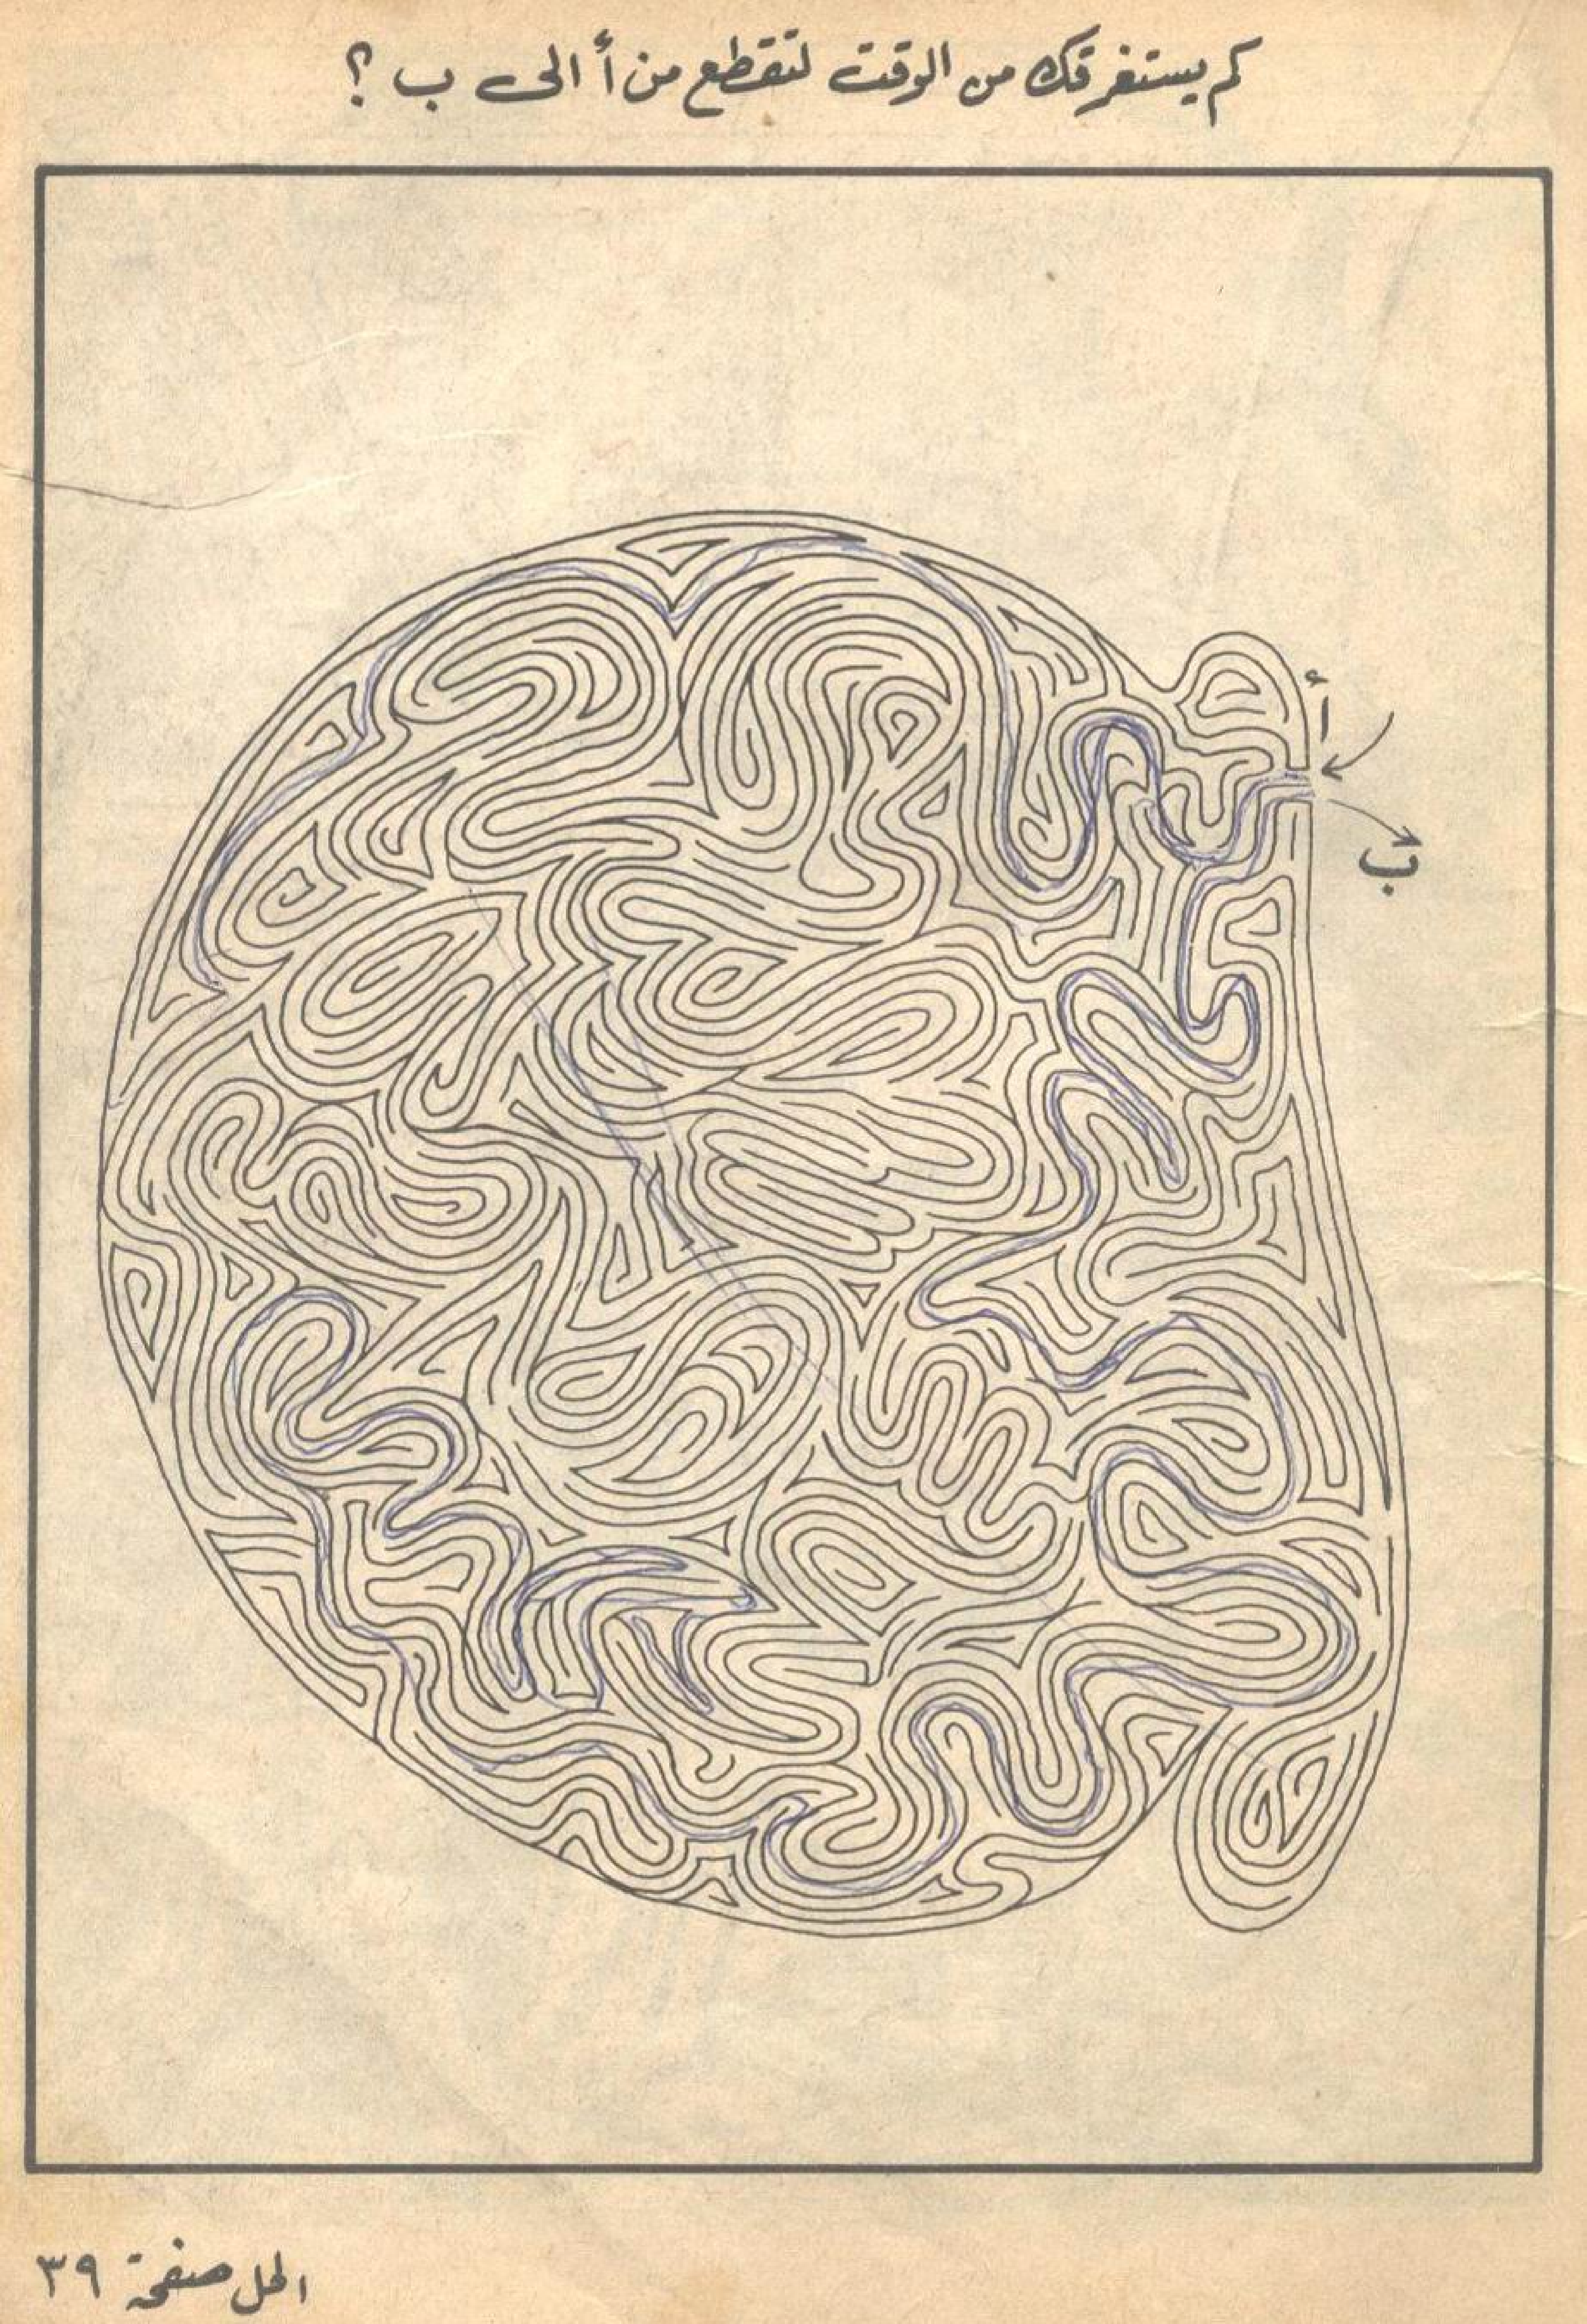 كم يستغرقك من الوقت لتقطع من أ الى ب ؟
أ
ب
الحل صفحة ٣٩